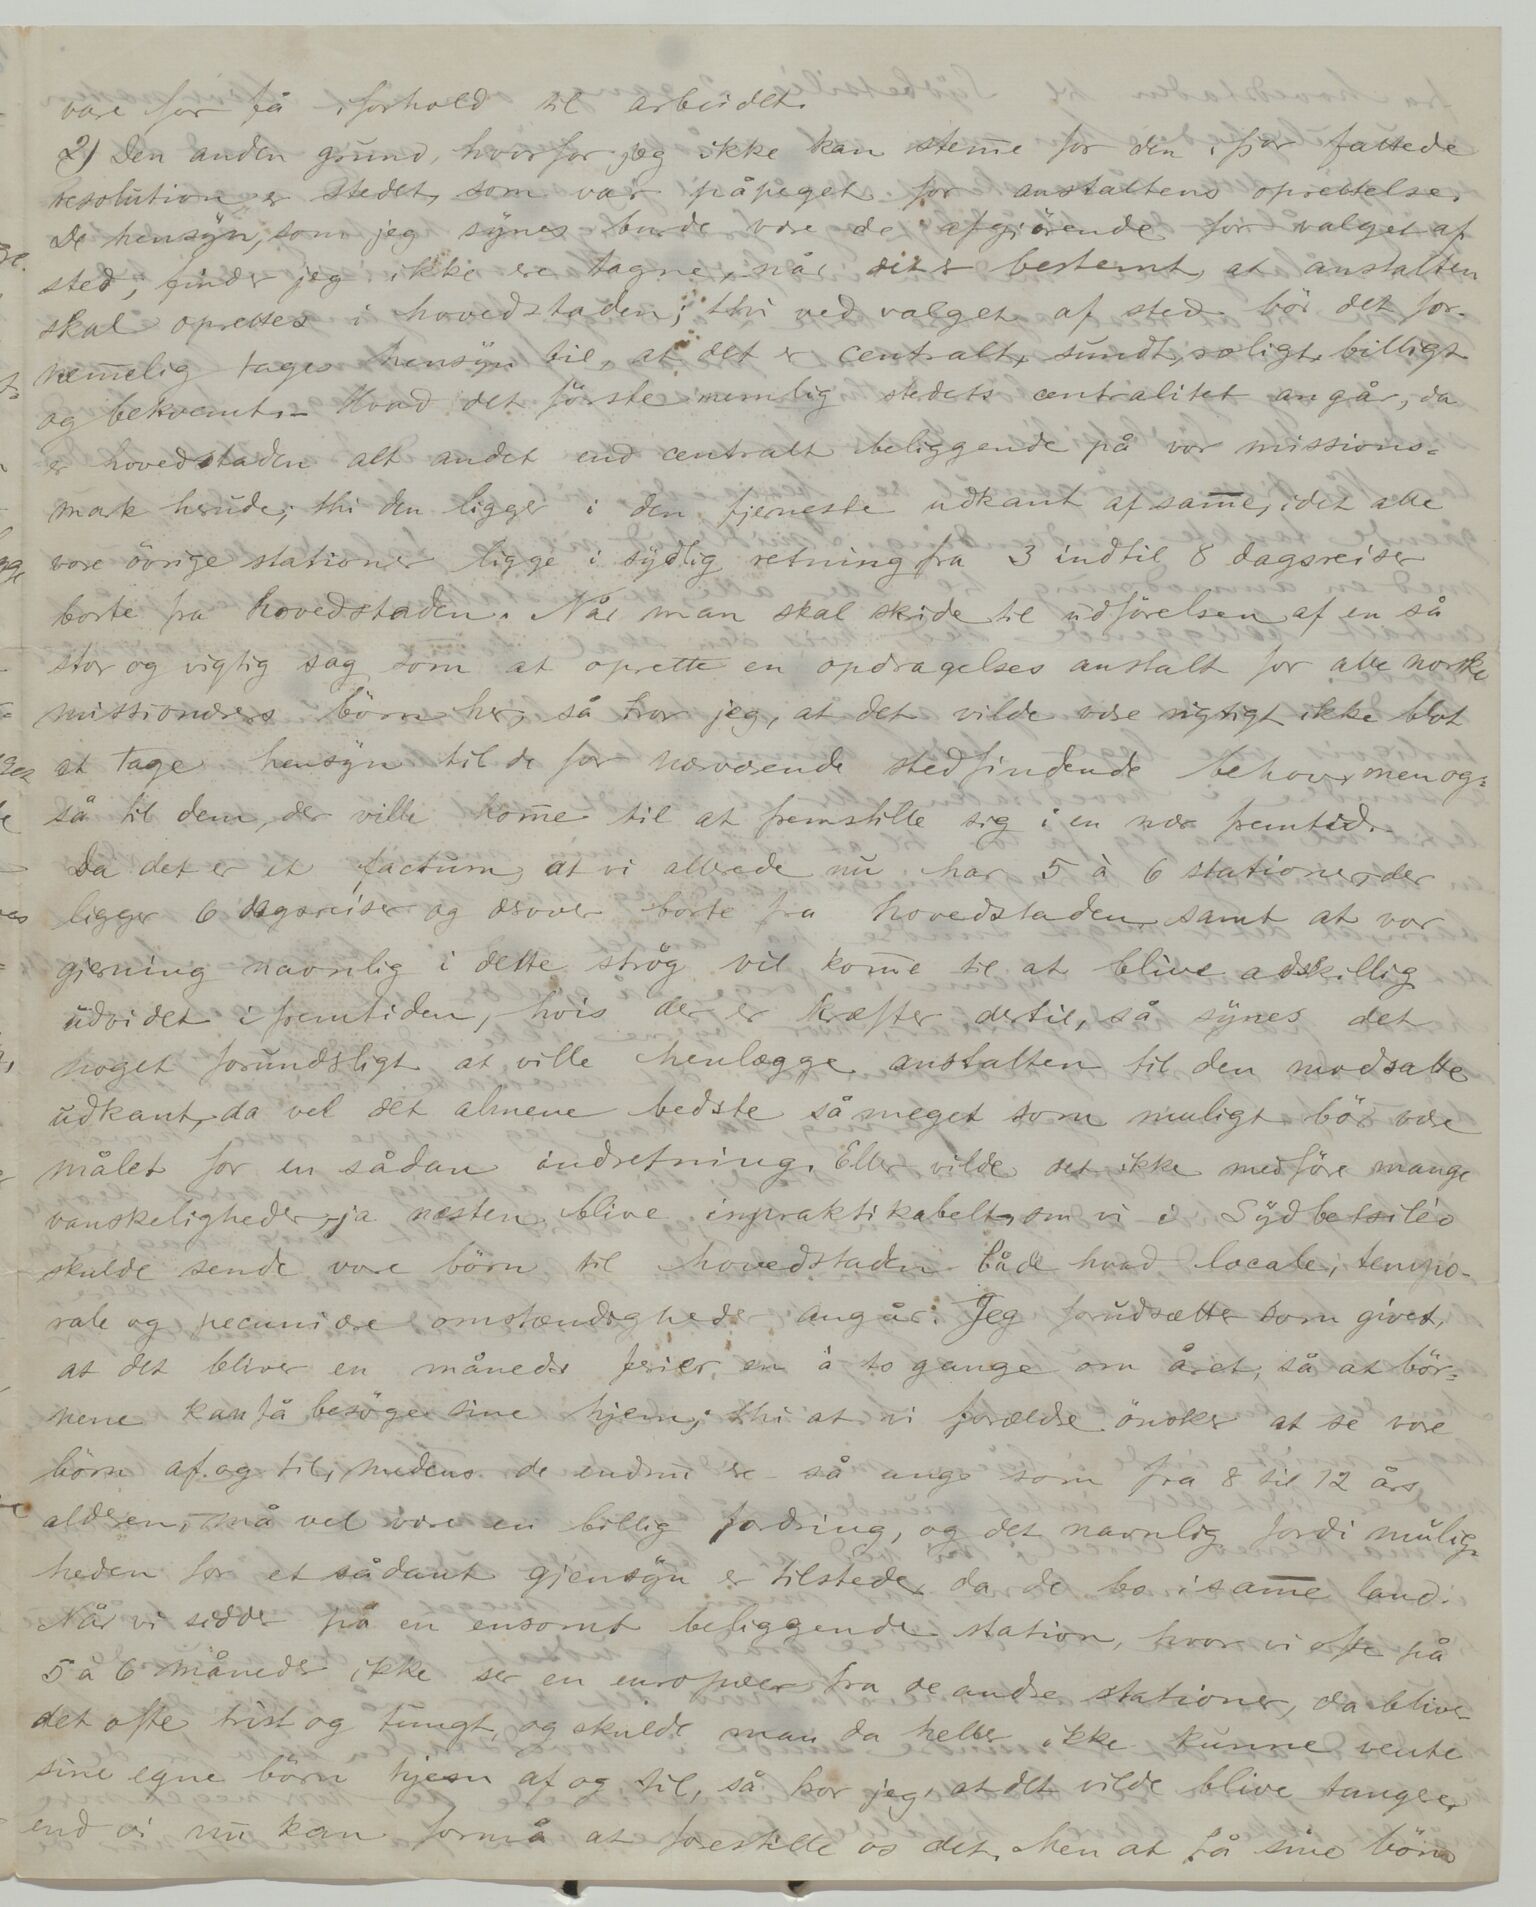 være for få i forhold til arbeidet.
2) Den anden grund, hvorfor jeg ikke kan stem̅e for den i fjor fattede
resolution er stedet, som var påpeget for anstaltens oprettelse.
De hensÿn, som jeg sÿnes burde være de afgjörende for valget af
sted, finder jeg ikke ere tagne, når det er bestemt, at anstalten
skal oprettes i hovedstaden; thi ved valget af sted bör det for-
nem̅elig tages hensÿn til, at det er centralt, sundt, roligt, billigt
og bekvemt. – Hvad det förste nemlig stedets centralitet angår, da
er hovedstaden alt andet end centralt beliggende på vor missions=
mark herude, thi den ligger i den fjerneste udkant af sam̅e, idet alle
vore övrige stationer ligge i sÿdlig retning fra 3 indtil 8 dagsreiser
borte fra hovedstaden. Når man skal skride til udförelsen af en så
stor og vigtig sag som at oprette en opdragelses anstalt for alle norske
missionærers börn her, så tror jeg, at det vilde være rigtigt ikke blot
at tage hensÿn til de for nærværende stedfindende behov, men og=
så til dem, der ville kom̅e til at fremstille sig i en nær fremtid.
Da det er et factum, at vi allerede nu har 5 à 6 stationer, der
ligger 6 dagsreiser og derover borte fra hovedstaden, samt at vor
gjerning navnlig i dette strög vil kom̅e til at blive adskillig
udvidet i fremtiden, hvis der er kræfter dertil, så sÿnes det
noget forunderligt at ville henlægge anstalten til den modsatte
udkant, da vel det almene bedste så meget som muligt bör være
målet for en sådan indretning. Eller vilde det ikke medföre mange
vanskeligheder, ja næsten blive inpraktikabelt, om vi i Sÿdbetsiléo
skulde sende vore börn til hovedstaden både hvad locale, tempo-
rale og pecuniære omstændigheder angår. Jeg forudsætter som givet,
at det bliver en måneds ferier en à to gange om året, så at bör=
nene kan få besöge sine hjem; thi at vi forældre önsker at se vore
börn af og til, medens de endnu ere så unge som fra 8 til 12 års
alderen, må vel være en billig fordring, og det navnlig fordi mulig=
heden for et sådant gjensÿn er tilstede, da de bo i sam̅e land.
Når vi sidder på en ensomt beliggende station, hvor vi ofte på
5 à 6 måneder ikke ser en europæer fra de andre stationer, da bliver
det ofte trist og tungt, og skulde man da heller ikke kunne vente
sine egne börn hjem af og til, så tror jeg, at det vilde blive tungere,
end vi nu kan formå at forestille os det. Men at få sine börn